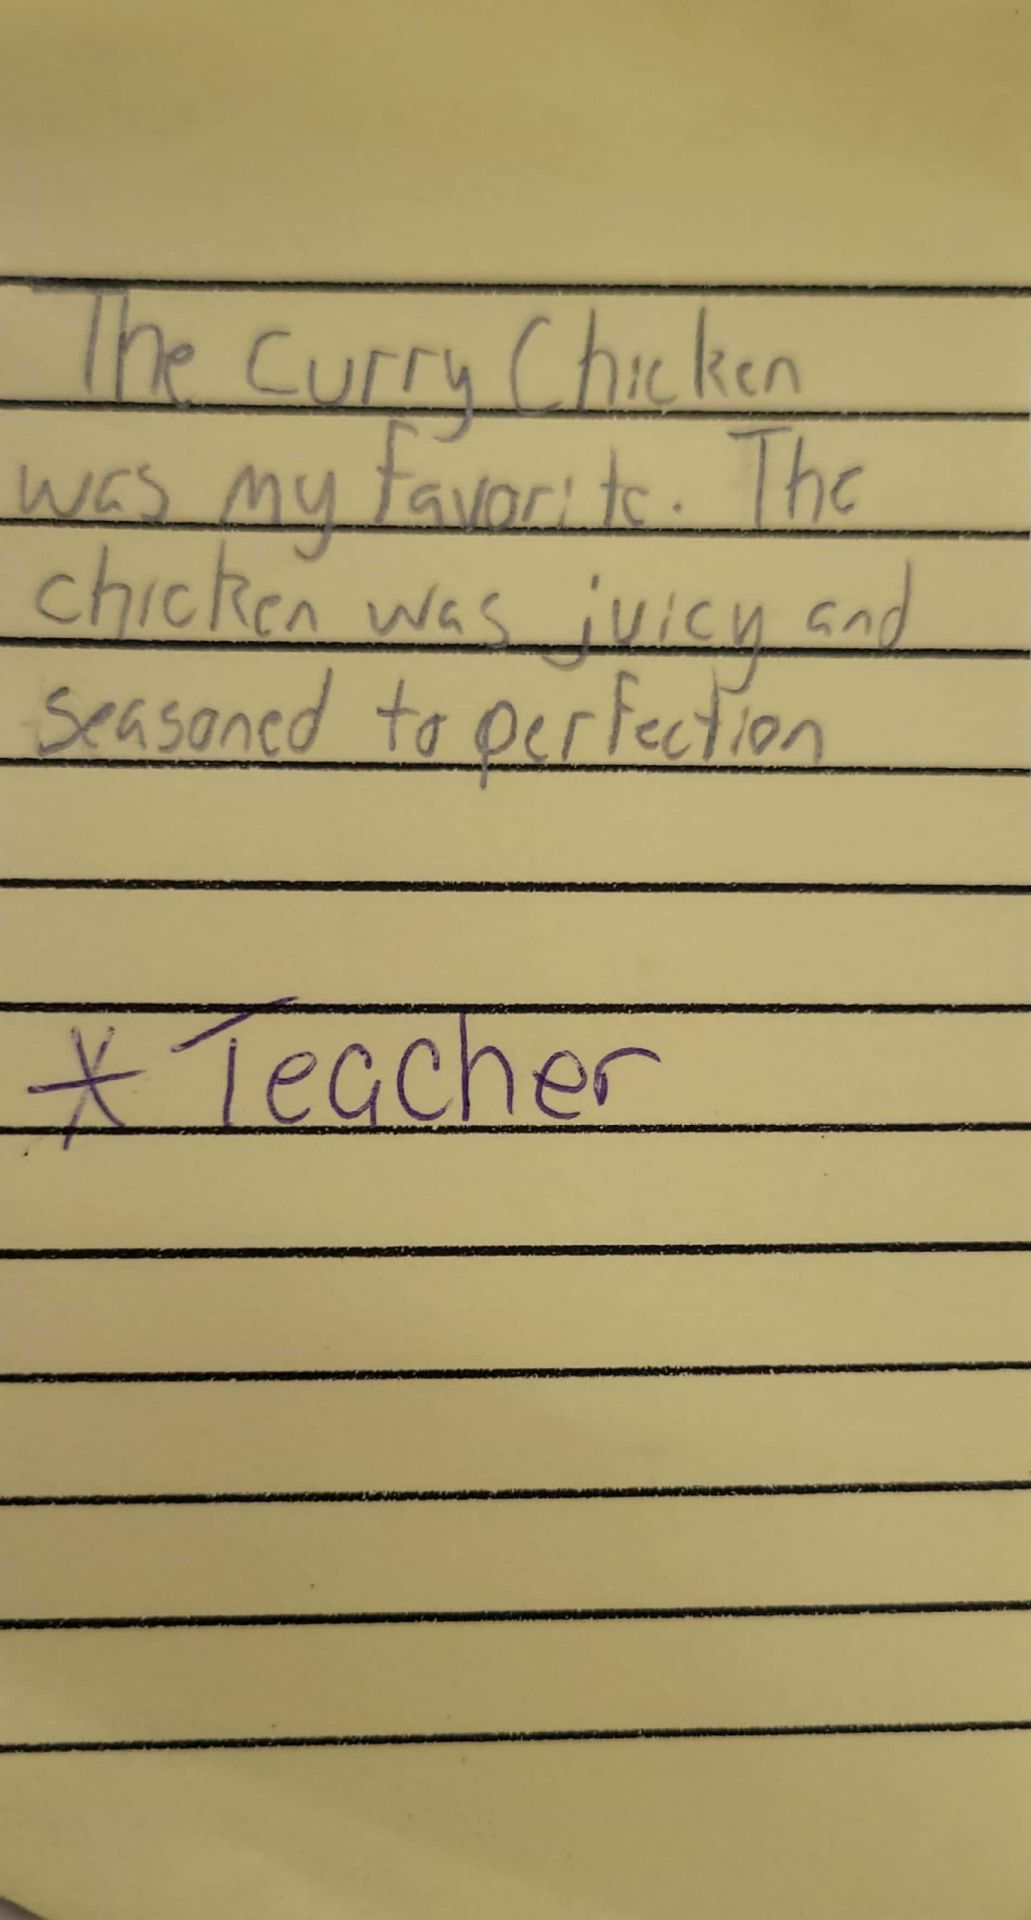 The Curry Chicken
was my favorite. The
chicken was juicy and
seasoned to perfection
* Teacher